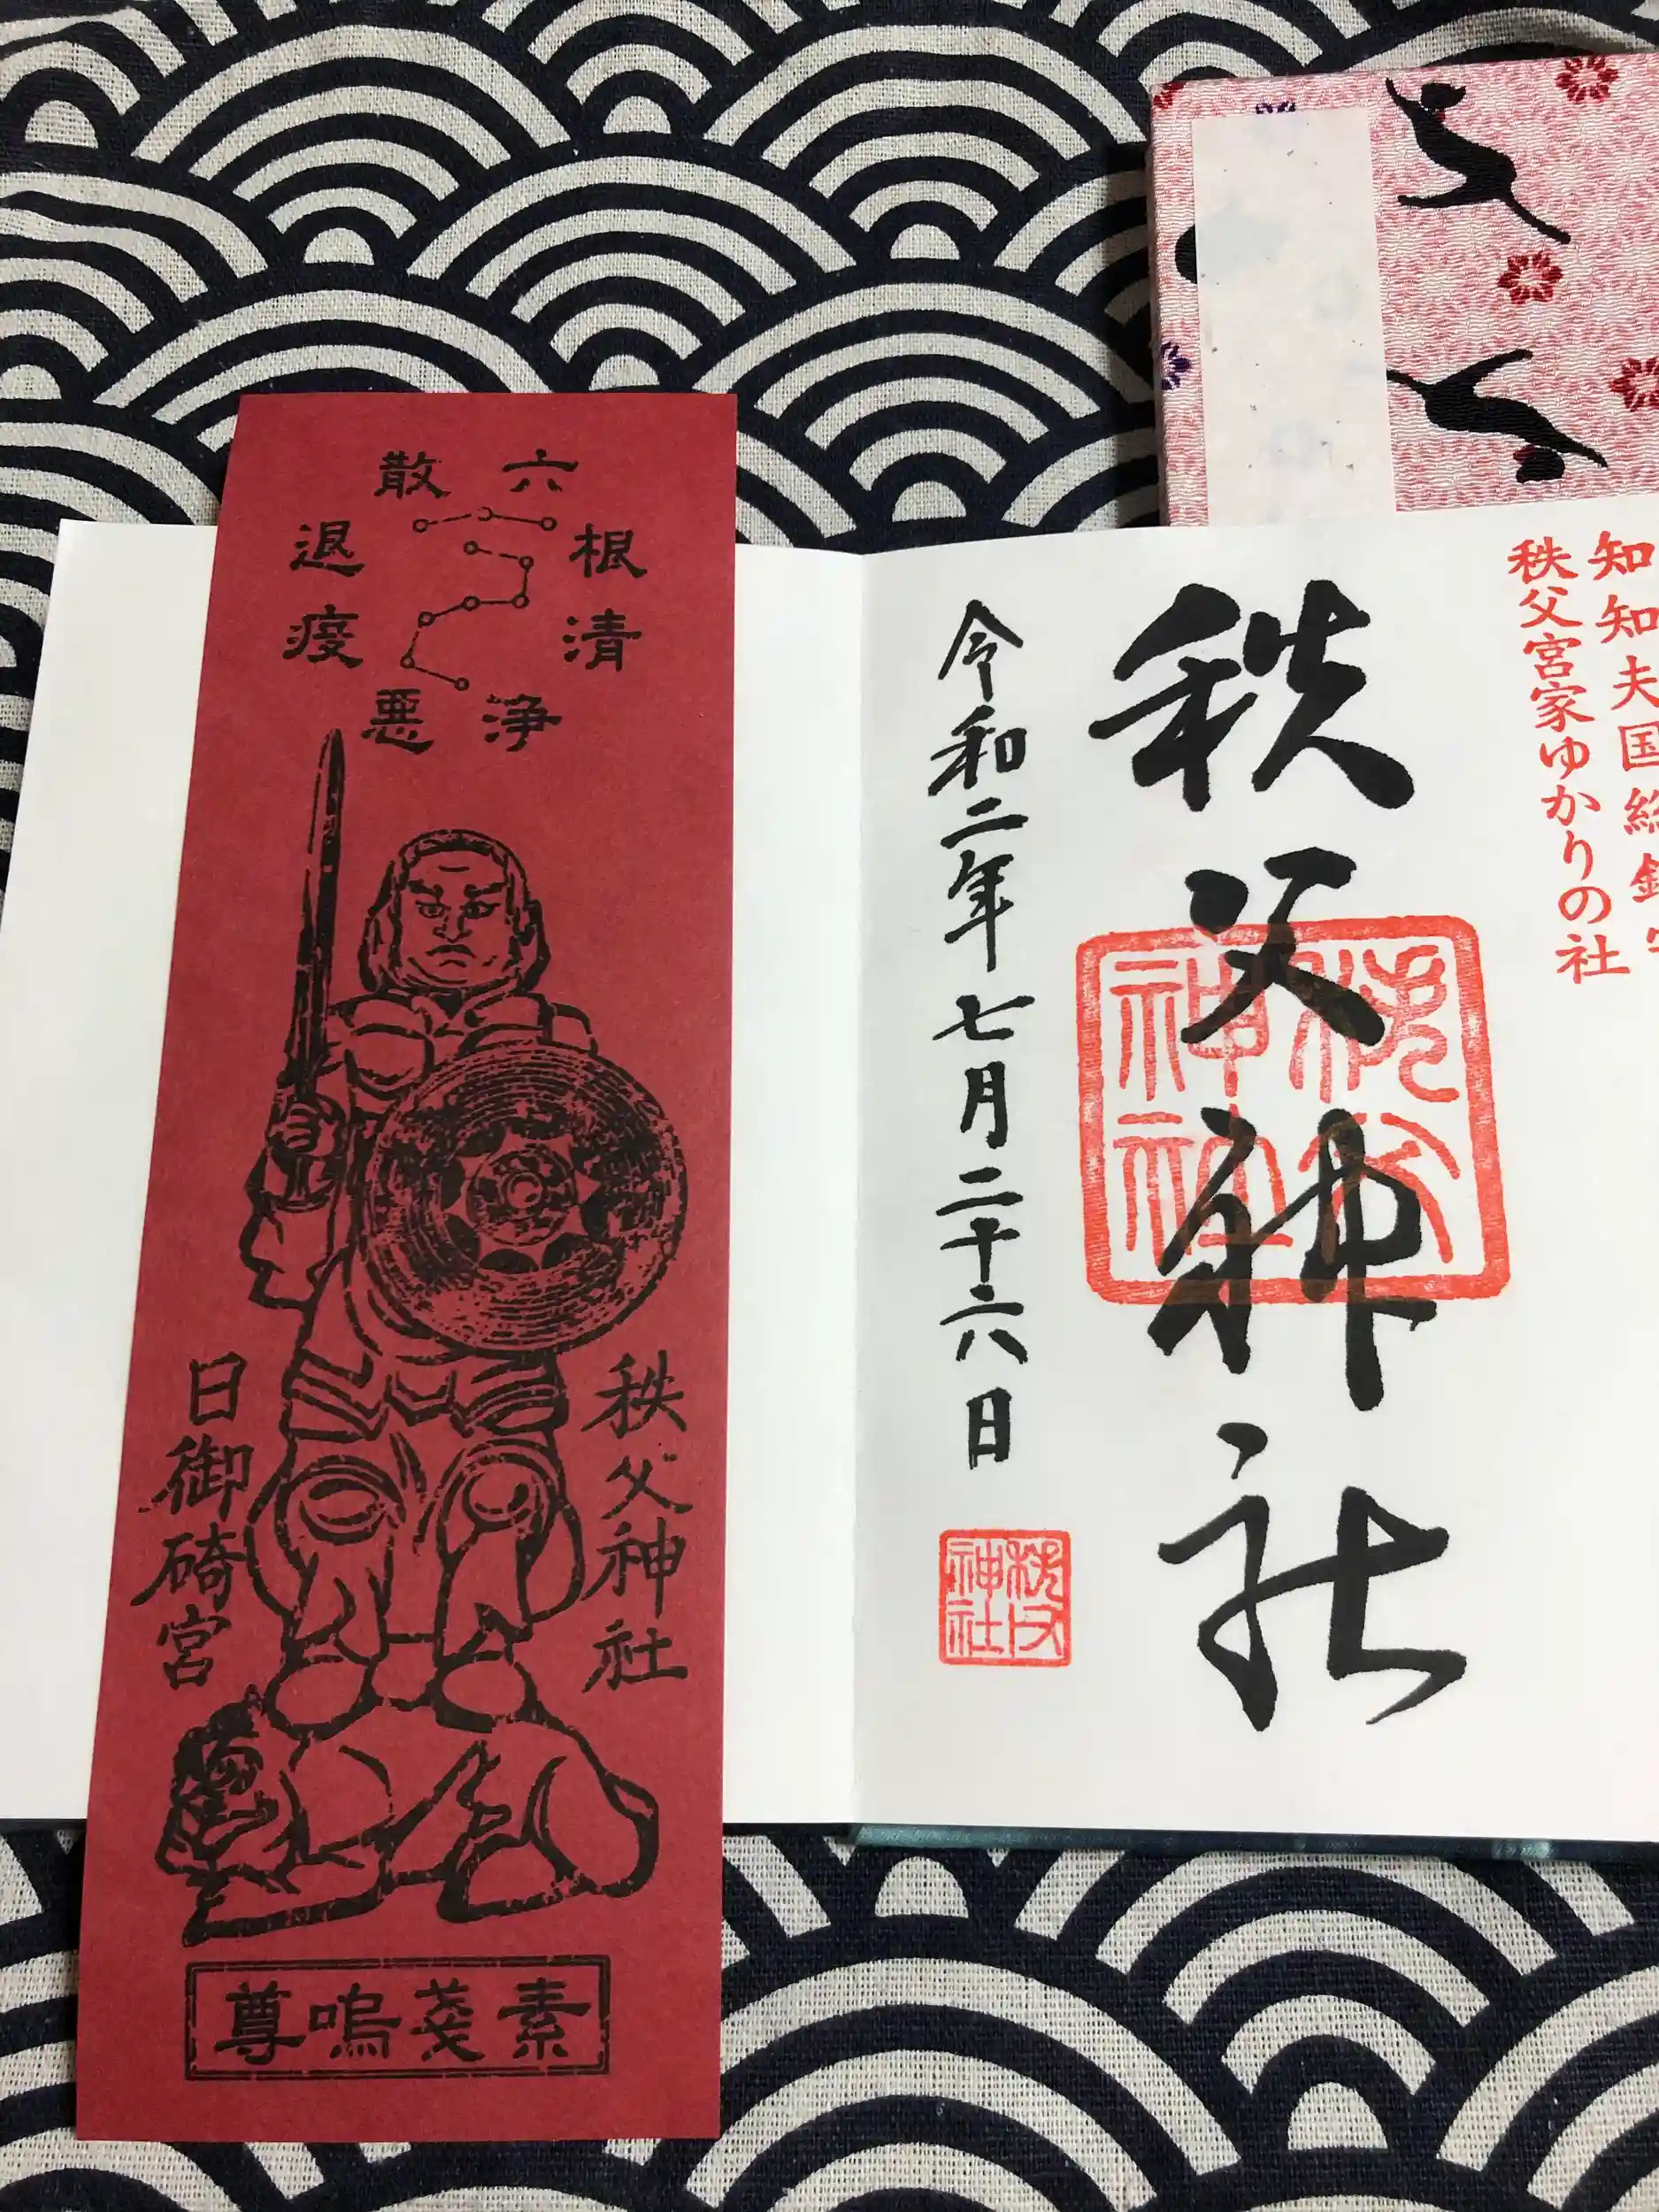 知知夫国総鎮守
秩父宮家ゆかりの社
秩父神社
秩父神社
令和二年七月二十六日
秩父神社
六根清浄
悪疫退散
秩父神社
日御碕宮
素戔嗚尊